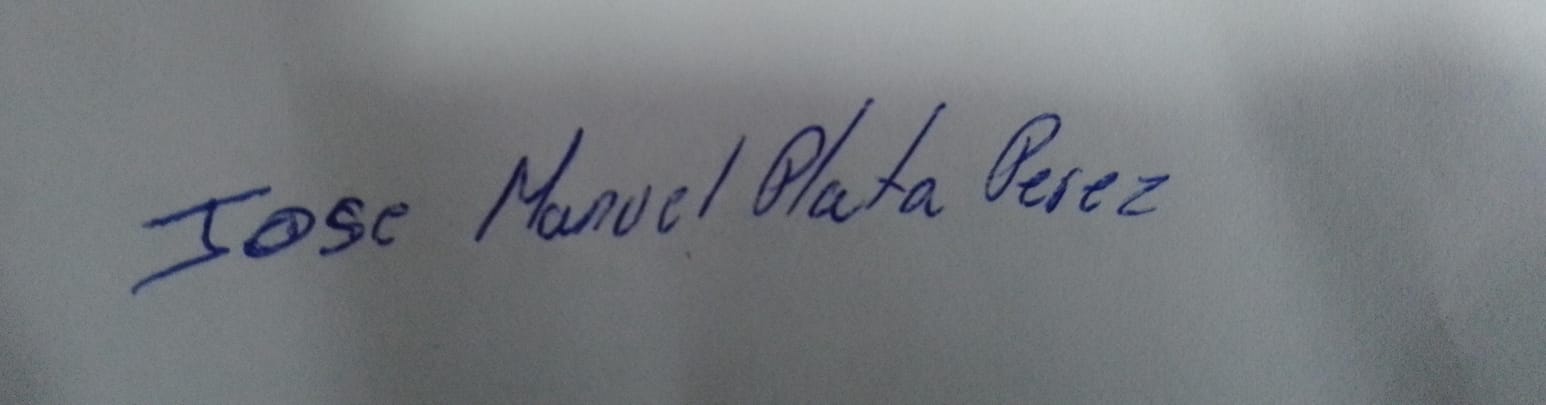 Jose Manuel Plata Perez